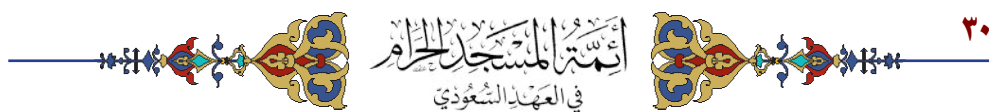 ٣٠
أئمة المسجد الحرام
في العهد السعودي